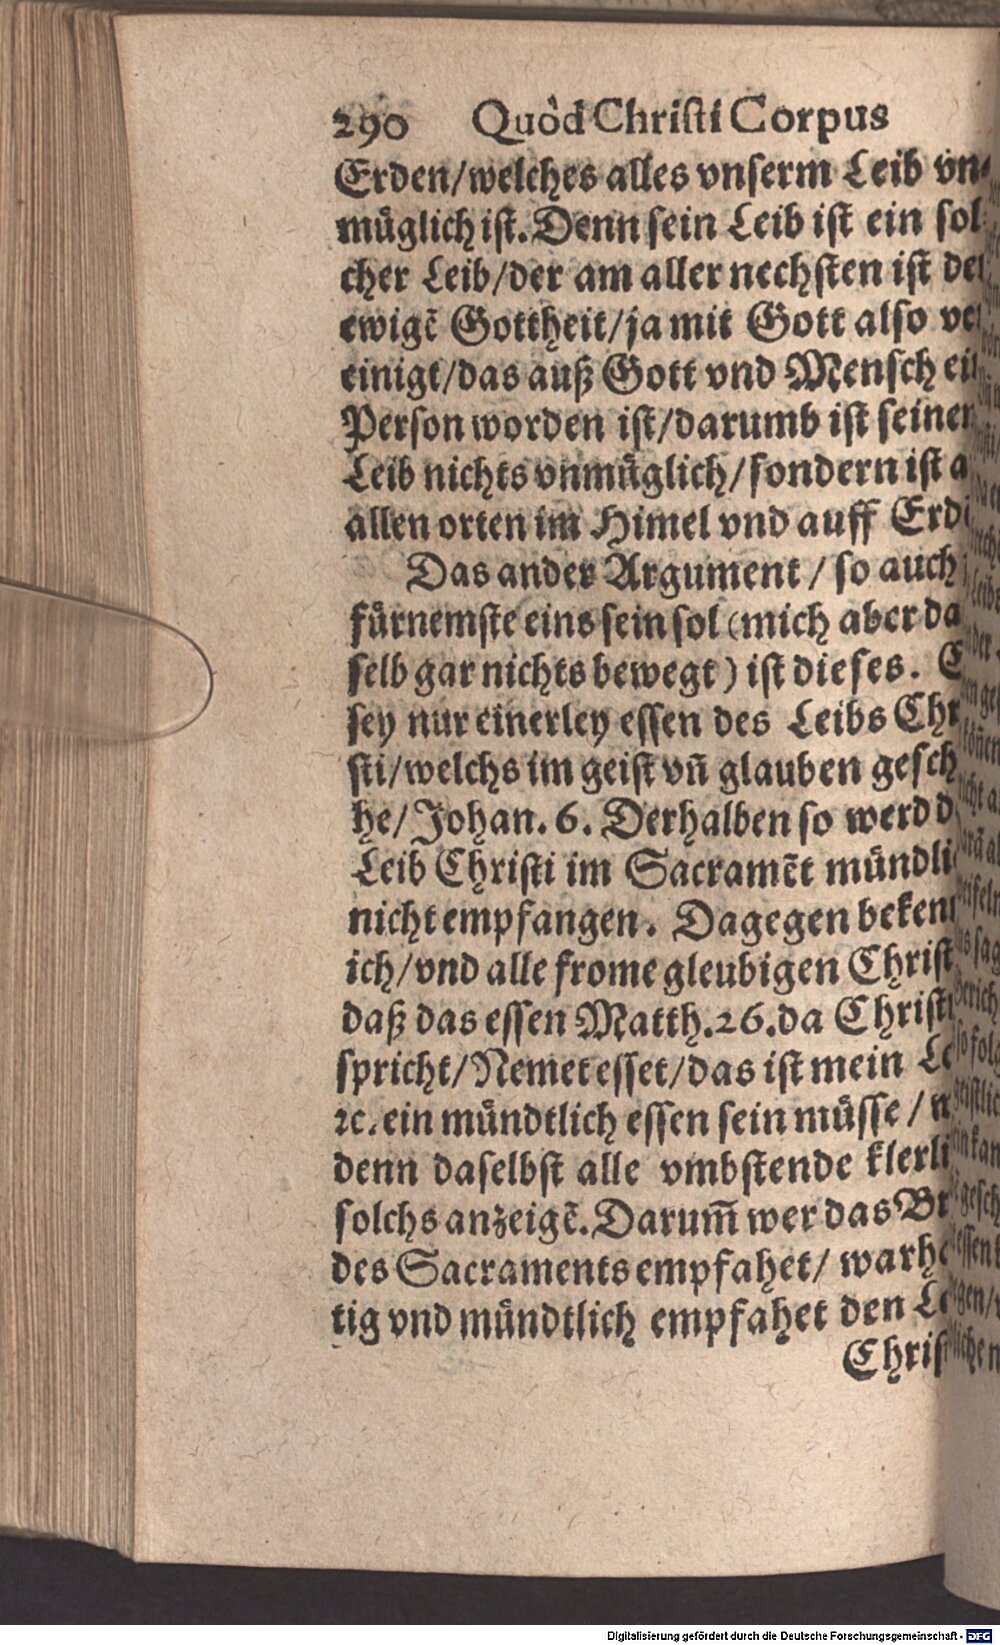 290 Quòd Christi Corpus
Erden/welches alles vnserm Leib vn⸗
müglich ist. Denn sein Leib ist ein sol⸗
cher Leib/der am aller nechsten ist
ewigẽ Gottheit/ja mit Gott also
einigt/das auß Gott vnd Mensch
Person worden ist/darumb ist
Leib nichts vnmüglich/sondern ist
allen orten im Himel vnd auff
Das ander Argument/so auch
fürnemste eins sein sol (mich aber
selb gar nichts bewegt) ist dieses.
sey nur einerley essen des Leibs
sti/welchs im geist vñ glauben
he/Johan. 6. Derhalben so werd
Leib Christi im Sacramẽt
nicht empfangen. Dagegen
ich/vnd alle frome gleubigen
daß das essen Matth. 26. da
spricht/Nemet esset/das ist mein
ꝛc. ein mündtlich essen sein müsse/
denn daselbst alle vmbstende
solchs anzeigẽ. Darum̃ wer das
des Sacraments empfahet/
tig vnd mündtlich empfahet den
Digitalisierung gefördert durch die Deutsche Forschungsgemeinschaft - DFG